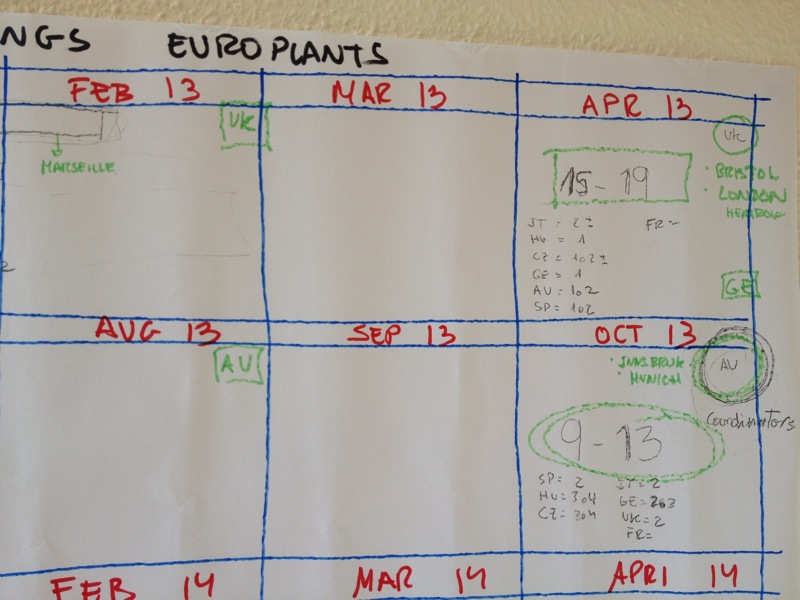 NGS EUROPLANTS
FEB 13 MAR 13 APR 13
UK
UK
MARSEILLE
15-19
BRISTOL
LONDON
IT = 2±
FR =
HU = 1
CZ = 1o2±
GE = 1
AU = 1o2
SP = 1o2
GE
AUG 13 SEP 13 OCT 13
AU
INNSBRUK
MUNICH
AU
COORDINATORS
9-13
SP = 2
IT = 2
HU = 3o4
GE =
CZ = 3o4
UK = 2
FR =
FEB 14 MAR 14 APRI 14